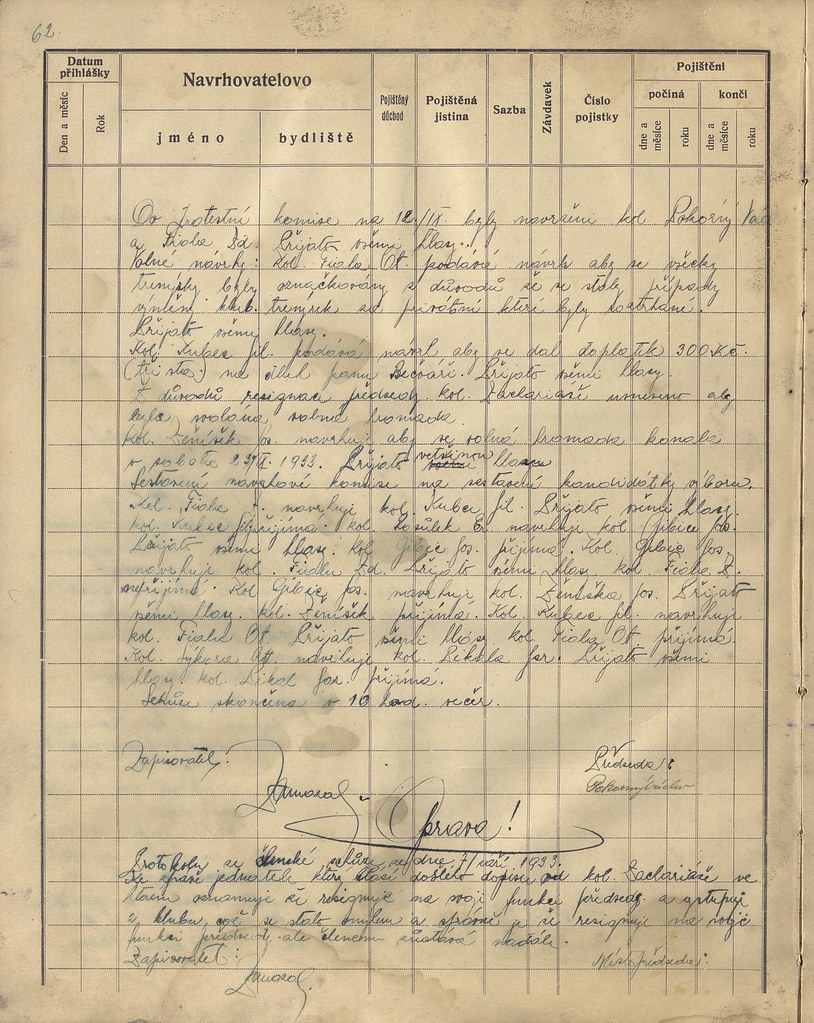 62.
Datum přihlášky
Navrhovatelovo
Pojištěný důchod
Pojištěná jistina
Sazba
Závdavek
Číslo pojistky
Pojištění
počíná
končí
Den a měsíc
Rok
jméno
bydliště
dne a měsíce
roku
dne a měsíce
roku
Do Protestní komise na 12/IX. byly navrženi kol. Pokorný
a Fiala Ed. Přijato všemi hlasy.
Volné návrhy: Kol. Fiala Ot. podává návrh aby se všecky
trenýrky byly označkovány z důvodů že se staly případy
klub. trenýrek od privátní které byly
Přijato všemi hlasy.
Kol. Kubec fil. podává návrh aby se dal doplatek 300 Kč.
(tři sta) na dluh panu Bečváři. Přijato všemi hlasy.
Z důvodů resignace předsedy kol. Zachariáše usneseno aby
byla svolána valná hromada.
Kol. Ženíšek jos. navrhuje aby se valná hromada konala
v sobotu 23/IX. 1933. Přijato většinou hlasů
Sestavení návrhové komise na sestavení kandidátky výboru.
Kol. Fiala navrhuje kol. Kubec fil. Přijato všemi hlasy.
kol. Kubec fil. přijímá. kol. navrhuje kol. Gibiče jos.
Přijato všemi hlasy. kol. Gibiče jos. přijímá. Kol. Gibiče jos.
navrhuje kol. Fialu Ed. Přijato všemi hlasy kol. Fiala E.
nepřijímá. Kol. Gibiče jos. navrhuje kol. Ženíška jos. Přijato
všemi hlasy. kol. Ženíšek přijímá. Kol. Kubec fil. navrhuje
kol. Fialu Ot. Přijato všemi hlasy kol. Fiala Ot. přijímá.
Kol. Sýkora Ott. navrhuje kol. Jar. Přijato všemi
hlasy. kol. Jar. přijímá.
Schůze skončena v 10 hod. večer.
Zapisovatel:
Předseda:
Pokorný Václav
Oprava!
Protokolu ze členské schůze ze dne 7/září 1933.
Ze zprávě jednatele která hlásí došlého dopisu od kol. Zachariáše ve
kterém oznamuje že resignuje na svoji funkci předsedy a vystupuje
z klubu, což se stalo omylem a správně je že resignuje na svoje
funkci předsedy ale členem zůstává nadále.
Zapisovatel:
Místopředseda: